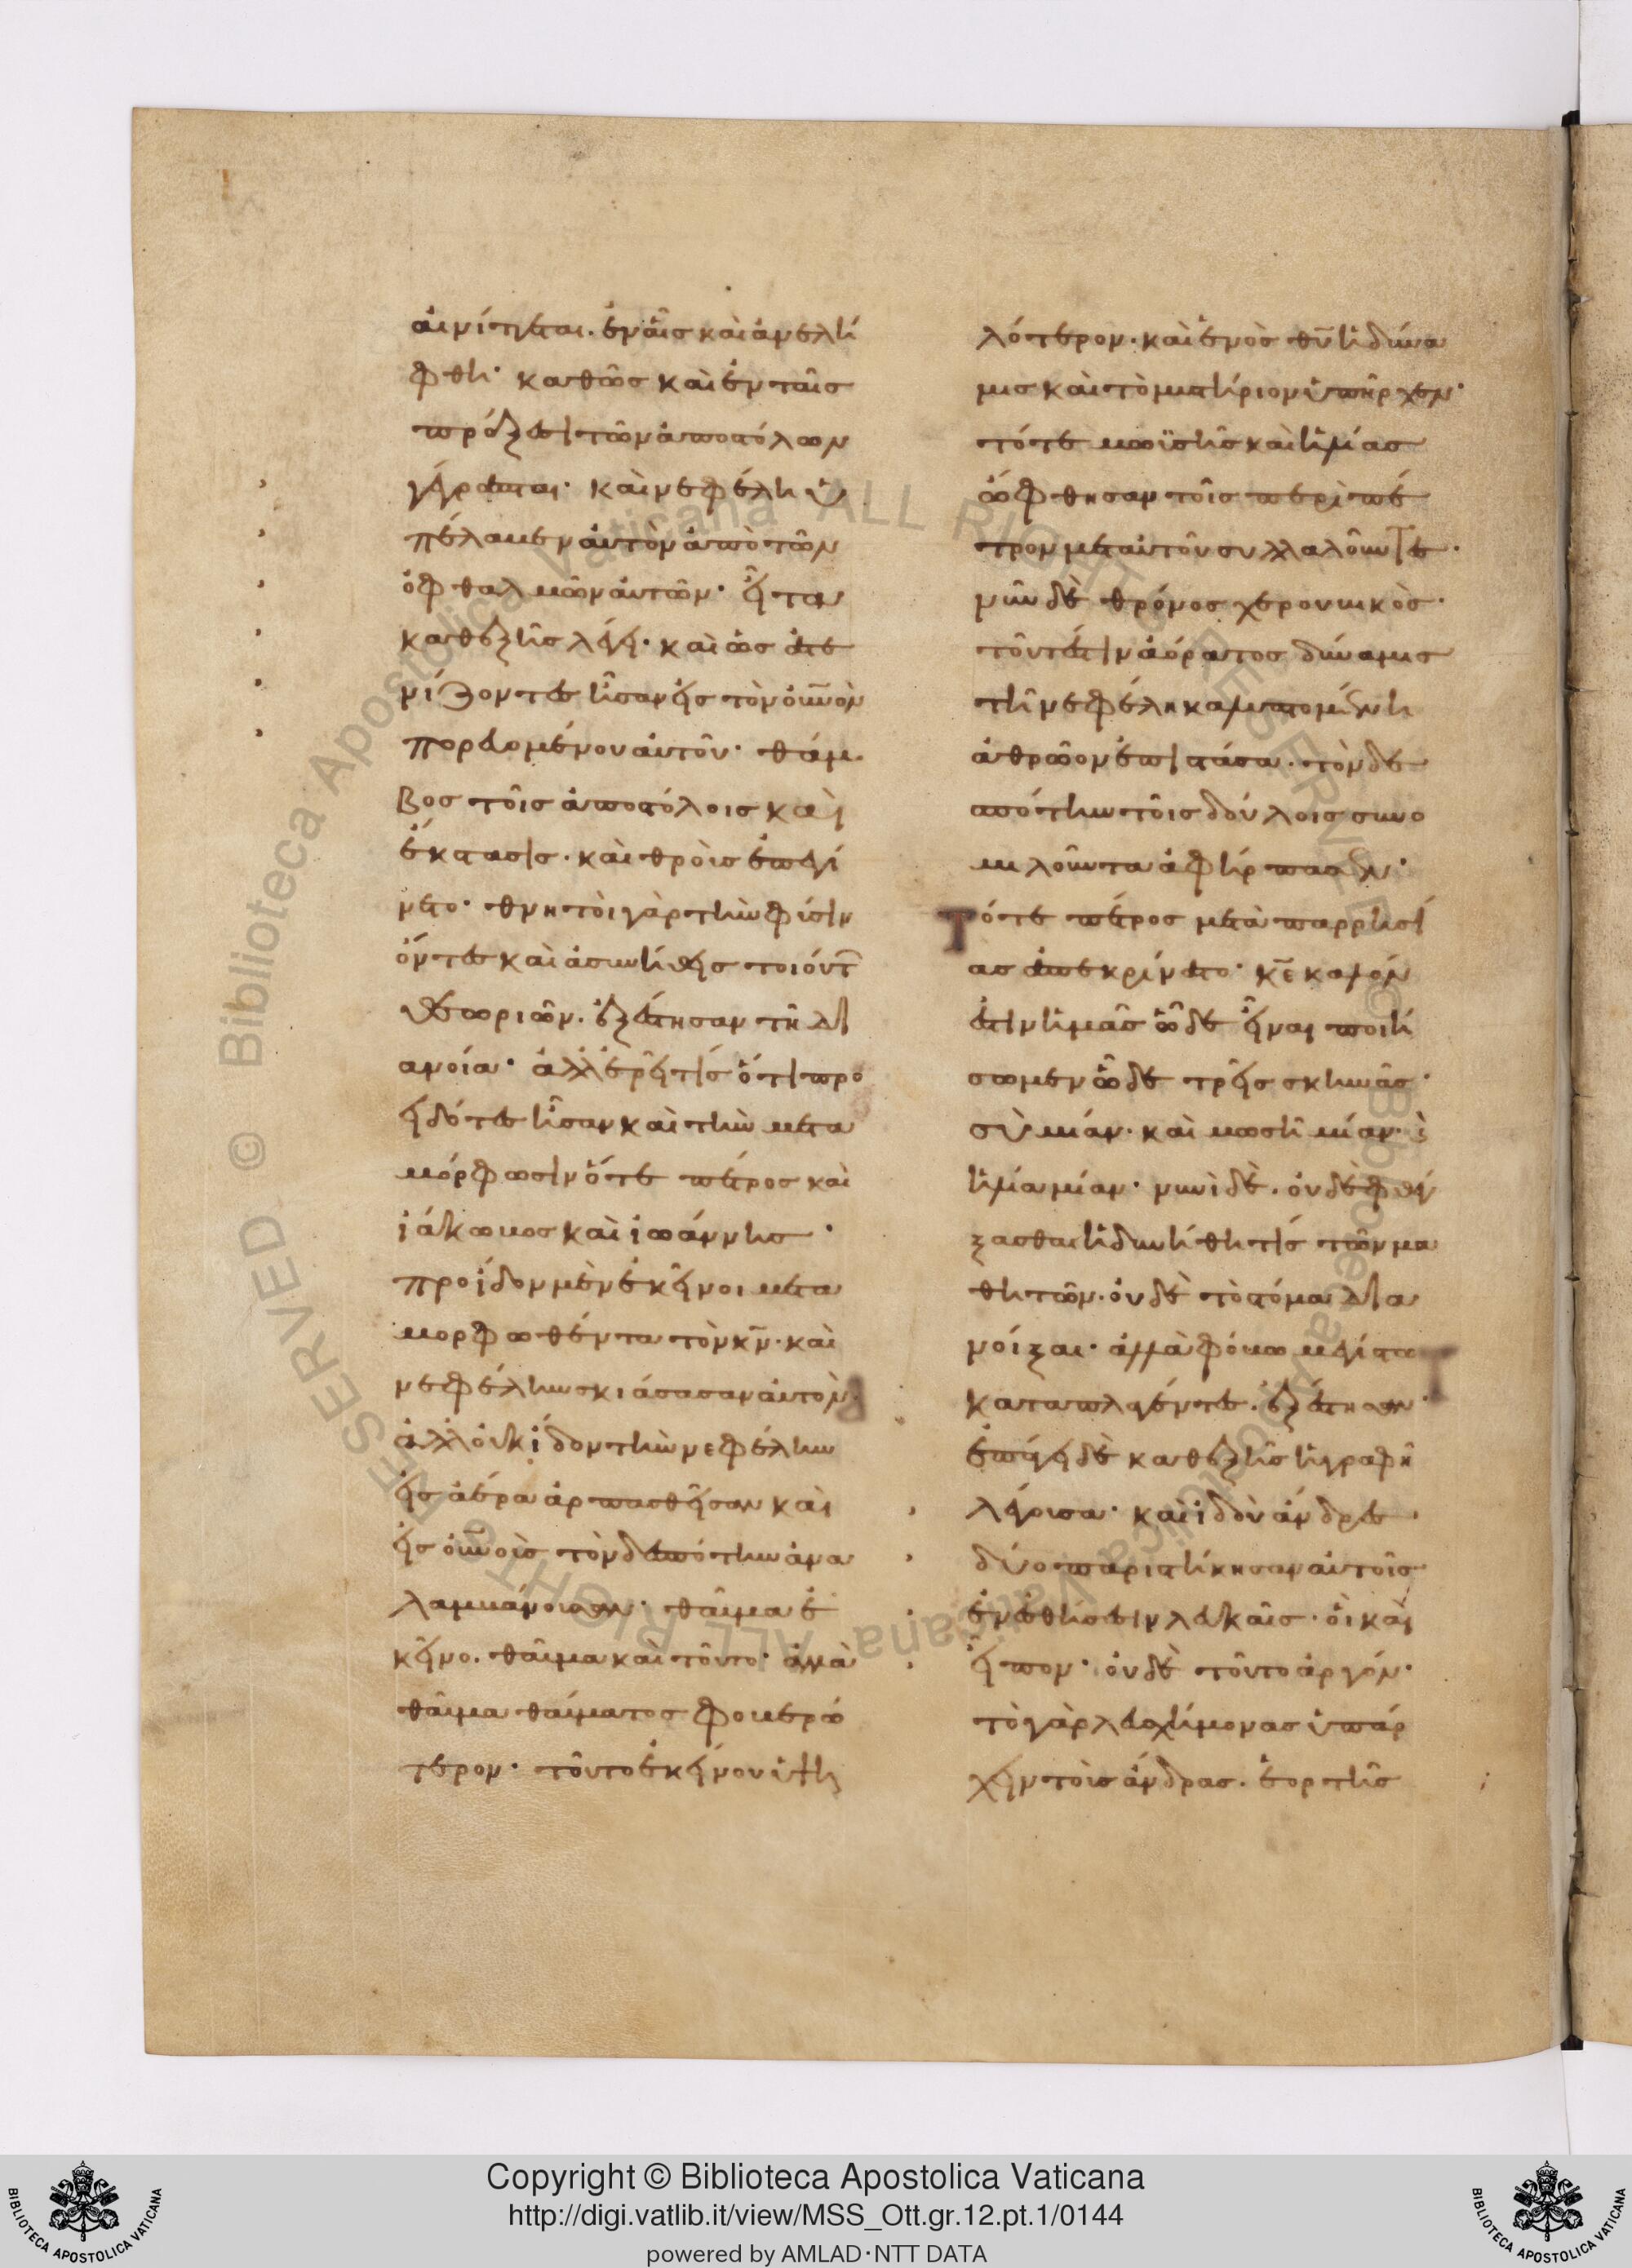 αἰνίττεται. ἐν αἷς καὶ ἀνελή
φθη· καθὼς καὶ ἐν ταῖς
πράξεσι τῶν ἀποστόλων
γέγραπται· καὶ νεφέλη ὑ
πέλαβεν αὐτὸν ἀπὸ τῶν
ὀφθαλμῶν αὐτῶν· εἶτα
καθεξῆς λέγει· καὶ ὡς ἀτε
νίζοντες ἦσαν εἰς τὸν οὐνὸν
πορευομένου αὐτοῦ· θάμ
βος τοῖς ἀποστόλοις καὶ
ἔκστασις. καὶ θροῦς ἐπεγί
νετο· θνητοὶ γὰρ τὴν φύσιν
ὄντες καὶ ἀσυνήθεις τοιούτ
θεωριῶν. ἐξέστησαν τῆ δι
ανοία· ἀλλ' ἐρεῖ τίς ὅτι προ
ειδότες ἦσαν καὶ τὴν μετα
μόρφωσιν ὅτε πέτρος καὶ
ἰάκωβος καὶ ἰωάννης·
προεῖδον μὲν ἐκεῖνοι μετα
μορφωθέντα τὸν κν· καὶ
νεφέλην σκιάσασαν αὐτὸν·
ἀλλ' οὐκ εἶδον τὴν νεφέλην
εἰς ἀέρα ἁρπασθεῖσαν καὶ
εἰς οὐνοὺς τὸν δεσπότην ἀνα
λαμβάνουσαν· θαῦμα ἐ
κεῖνο. θαῦμα καὶ τοῦτο· ἀλλὰ
θαῦμα θαύματος φοβερώ
τερον· τοῦτο ἐκείνου ὑψη
λότερον· καὶ ἑνὸς θυ ἡ δύνα
μις καὶ τὸ μυστήριον ὑπῆρχεν·
τότε μωϋσῆς καὶ ἡλίας
ὤφθησαν τοῖς περὶ πέ
τρον μετ' αὐτοῦ συλλαλοῦντες·
νῦν δὲ θρόνος χερουβικὸς·
τοῦτ' ἔστιν ἀόρατος δύναμις
τῆ νεφέλη καλυπτομένη
ἀθρόον ἐπιστᾶσα. τὸν δε
σπότην τοῖς δούλοις συνο
μιλοῦντα ἀφήρπασεν·
Τότε πέτρος μετὰ παρρησί
ας ἀπεκρίνατο· κε καλόν
ἐστιν ἡμᾶς ὧδε εἶναι ποιή
σωμεν ὧδε τρεῖς σκηνάς·
σὺ μίαν· καὶ μωσῆ μίαν· καὶ
ἡλία μίαν· νυνὶ δὲ. οὐδὲ φθέγ
ξασθαι ἠδυνήθη τίς τῶν μα
θητῶν. οὐδὲ τὸ στόμα δια
νοῖξαι· ἀλλὰ φόβω μεγίστω
καταπλαγέντες. ἐξέστησαν·
ἐπείγει δὲ καθεξῆς ἡ γραφὴ
λέγουσα· καὶ ἰδοὺ ἄνδρες
δύο παρειστήκησαν αὐτοῖς
ἐν ἐσθήσεσιν λευκαῖς· οἳ καὶ
εἶπον· οὐδὲ τοῦτο ἀργόν·
τὸ γὰρ λευχήμονας ὑπάρ
χειν τοὺς ἄνδρας. ἑορτῆς
Copyright © Biblioteca Apostolica Vaticana
http://digi.vatlib.it/view/MSS_Ott.gr.12.pt.1/0144
powered by AMLAD·NTT DATA